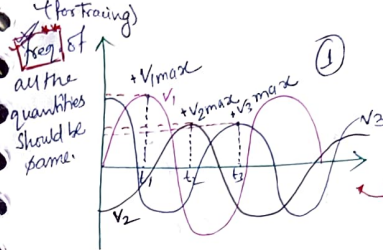 (for Tracing)
freq. of
all the
quantities
should be
same.
1
+V1max
V1
+V2max
+V3max
V3
t1
t2
t3
V2